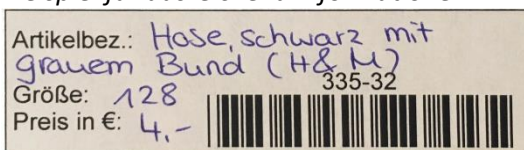 Artikelbez.: Hose, schwarz mit
grauem Bund (H&M)
335-32
Größe: 128
Preis in €: 4,-